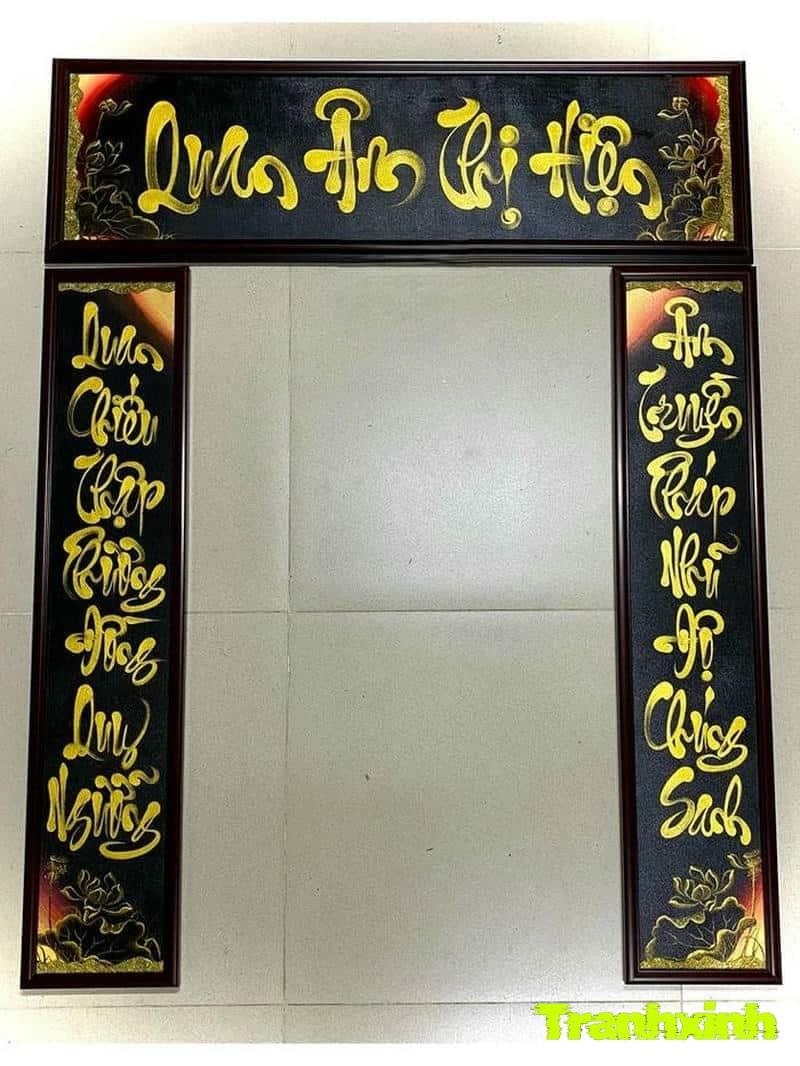 Quan Âm Thị Hiện
Quan
Chiếu
Thập
Phương
Đồng
Quy
Ngưỡng
Âm
Truyền
Pháp
Nhũ
Độ
Chúng
Sanh
Tranhxinh